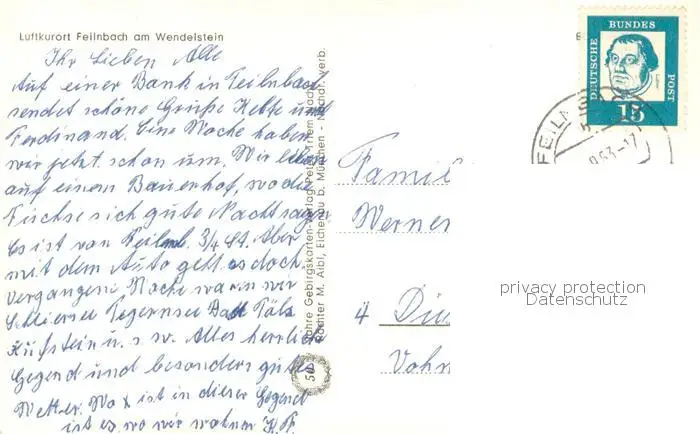 Luftkurort Feilnbach am Wendelstein
Ihr Lieben Alle
Auf einer Bank in Feilnbach
sendet schöne Grüße Kette und
Ferdinand. Eine Woche haben
wir jetzt schon um. Wir leben
auf einem Bauernhof, wo die
Füchse sich gute Nacht sagen
Es ist von Feilnb. 3/4 Aber
mit dem Auto geht es doch.
Vergangene Woche waren wir
Schliersee Tegernsee Bad Tölz
Kufstein u. s. w. Alles herrliche
Gegend und besonders gutes
Wetter. Wo x ist in dieser Gegend
ist es wo wir wohnen
50 Jahre Gebirgskarten-Verlag Peter
M. Aibl, Eichenau b. München - verb.
50
DEUTSCHE
BUNDES
POST
15
FEILN
9.63-17
Famil
Werner
4 Dui
Vohn
privacy protection
Datenschutz